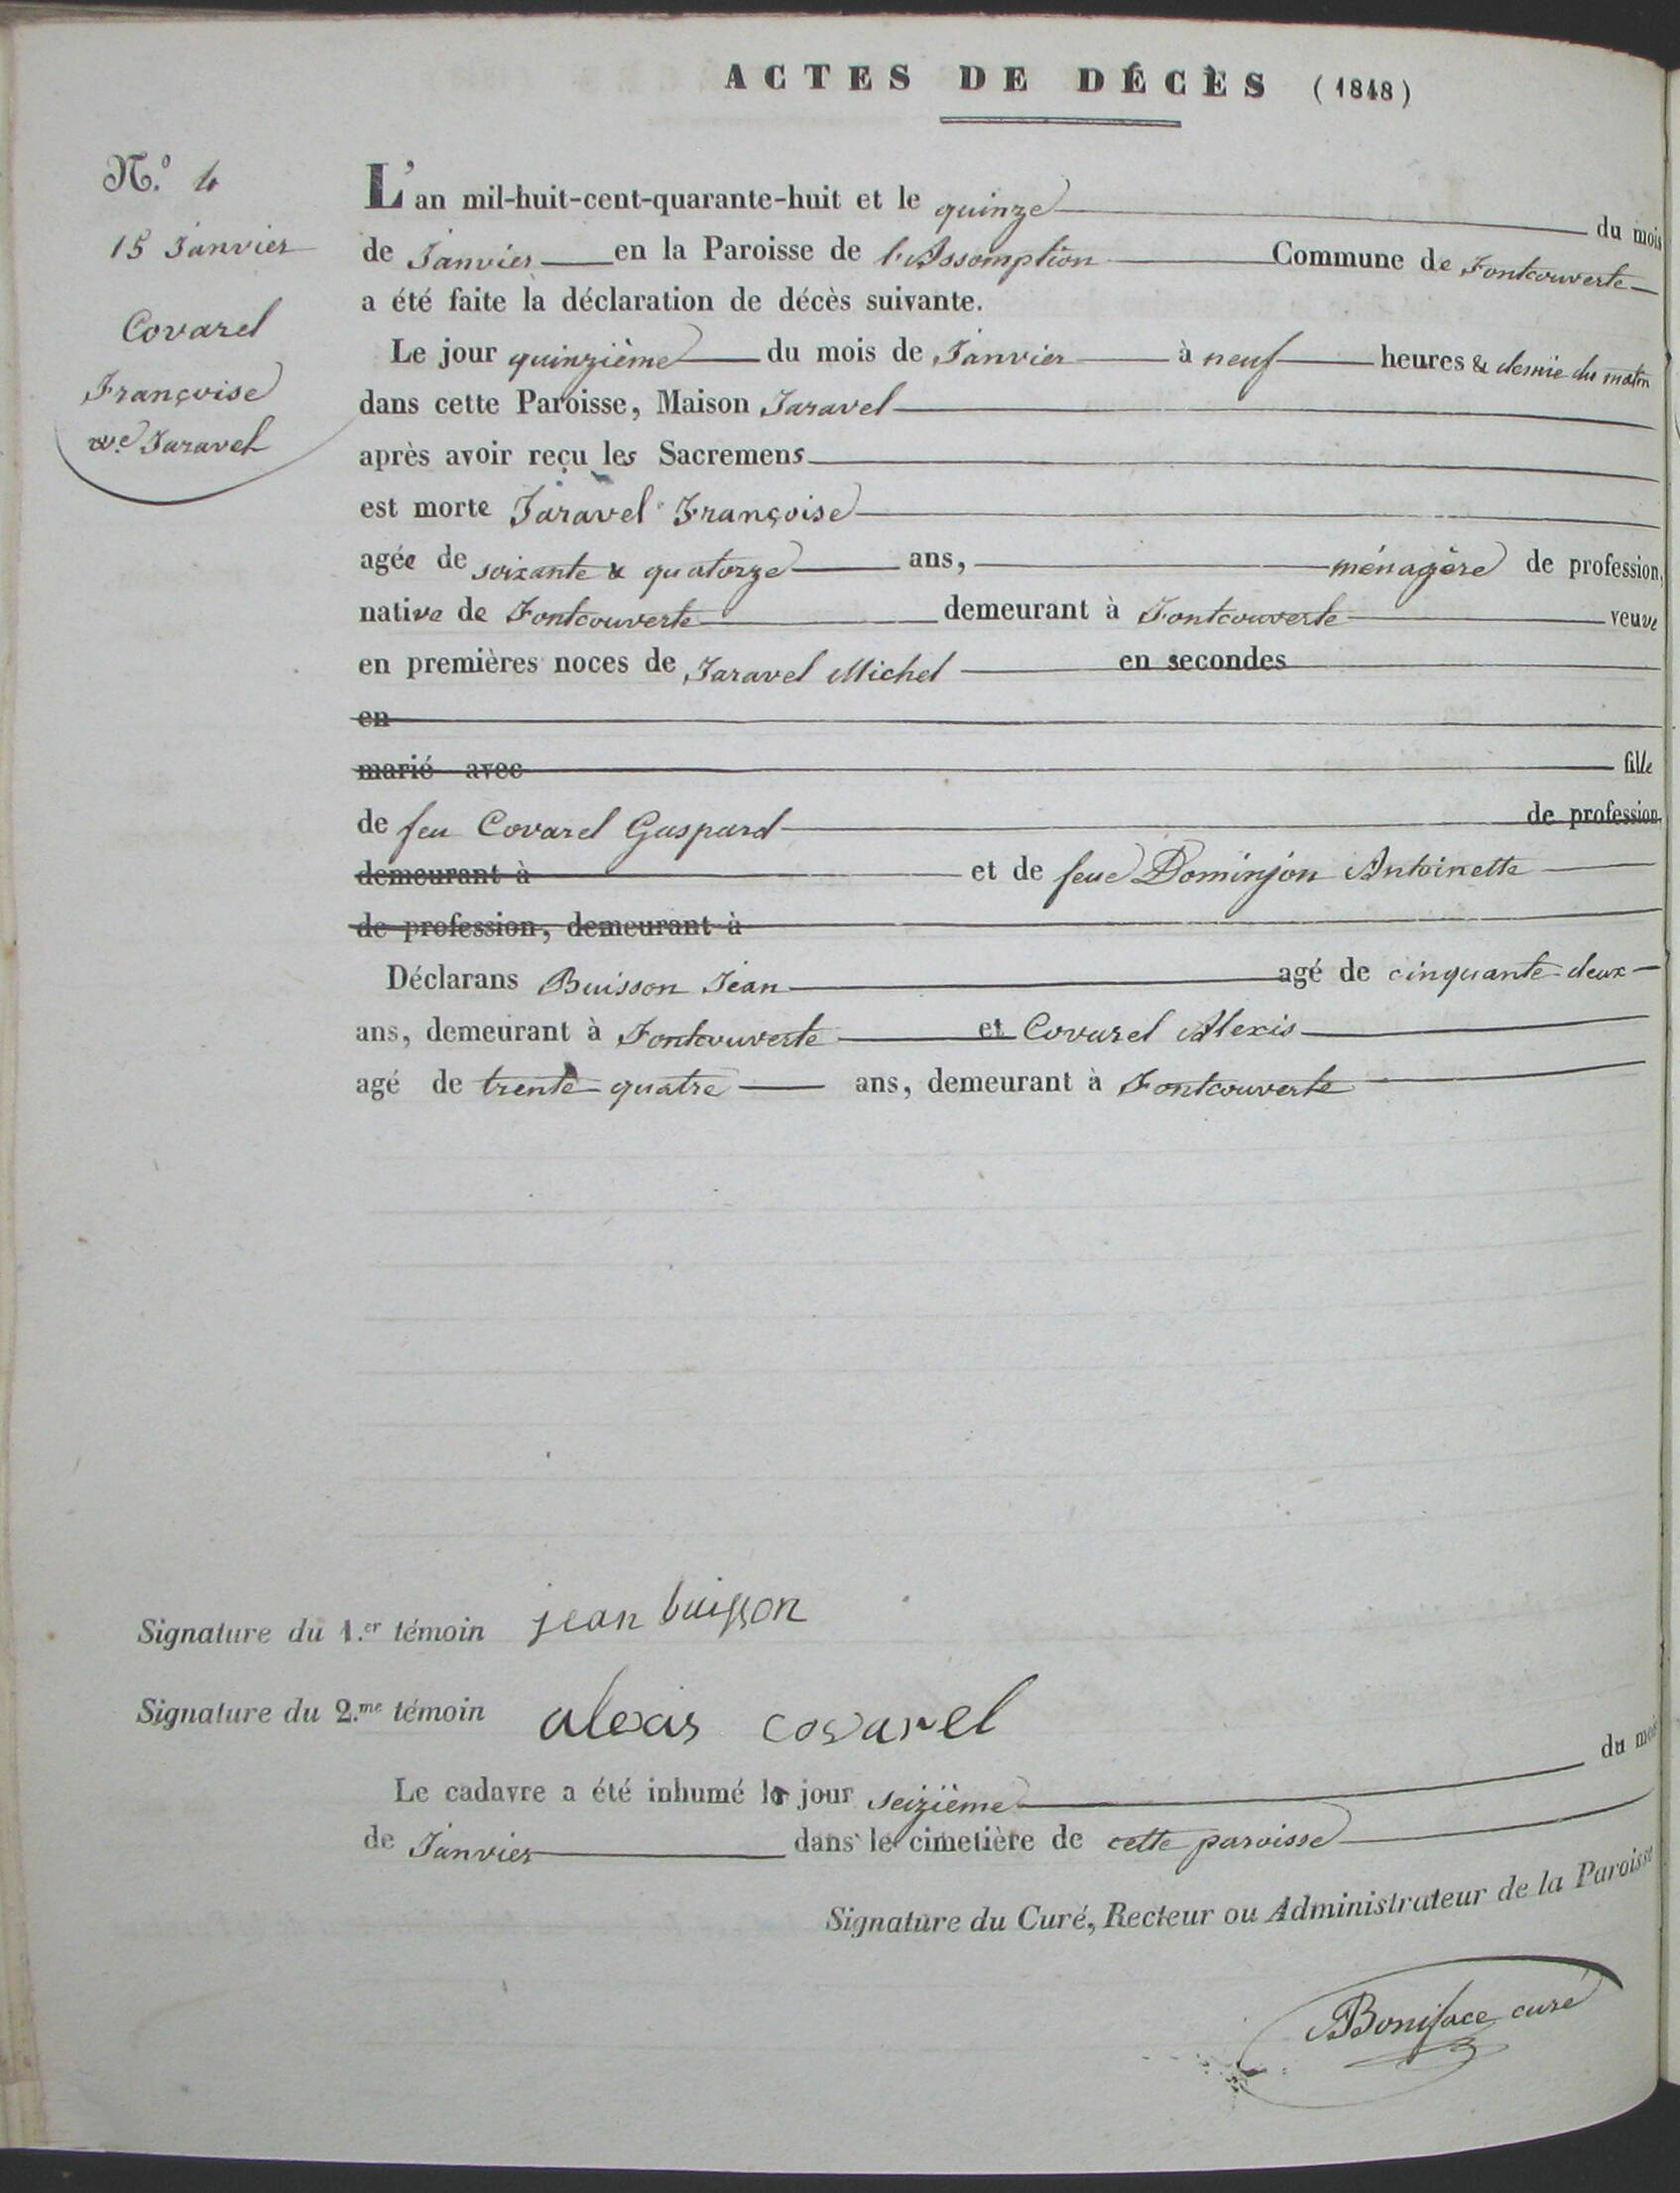 ACTES DE DÉCÈS (1848)
N.º 4
15 Janvier
Covarel
Françoise
ve. Jaravel
L'an mil-huit-cent-quarante-huit et le quinze du mois
de Janvier en la Paroisse de l'Assomption Commune de Fontcouverte
a été faite la déclaration de décès suivante.
Le jour quinzième du mois de Janvier à neuf heures & demie du matin
dans cette Paroisse, Maison Jaravel
après avoir reçu les Sacremens
est morte Jaravel Françoise
agée de soixante & quatorze ans, ménagère de profession,
native de Fontcouverte demeurant à Fontcouverte veuve
en premières noces de Jaravel Michel en secondes
en
marié avec fille
de feu Covarel Gaspard de profession,
demeurant à et de feue Dominjon Antoinette
de profession, demeurant à
Déclarans Buisson Jean agé de cinquante-deux
ans, demeurant à Fontcouverte et Covarel Alexis
agé de trente-quatre ans, demeurant à Fontcouverte
Signature du 1.er témoin jean buisson
Signature du 2.me témoin alexis covarel
Le cadavre a été inhumé le jour seizième du mois
de Janvier dans le cimetière de cette paroisse
Signature du Curé, Recteur ou Administrateur de la Paroisse
Boniface curé